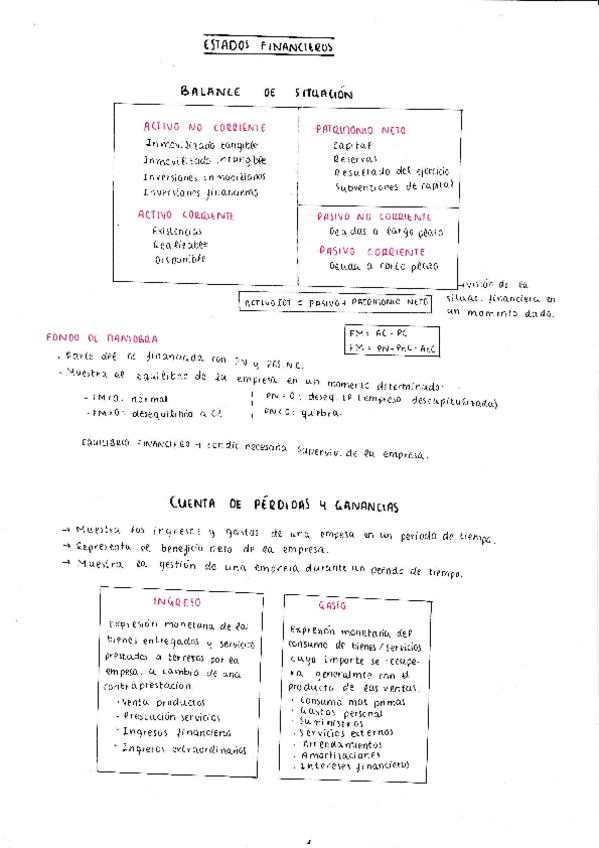 ESTADOS FINANCIEROS
BALANCE DE SITUACIÓN
ACTIVO NO CORRIENTE
Inmovilizado tangible
Inmovilizado intangible
Inversiones inmobiliarias
Inversiones financieras
ACTIVO CORRIENTE
Existencias
Realizable
Disponible
PATRIMONIO NETO
Capital
Reservas
Resultado del ejercicio
Subvenciones de capital
PASIVO NO CORRIENTE
Deudas a largo plazo
PASIVO CORRIENTE
Deuda a corto plazo
→ visión de la
situac. financiera en
un momento dado.
ACTIVO TOT = PASIVO + PATRIMONIO NETO
FM = AC - PC
FM = PN + PNC - ANC
FONDO DE MANIOBRA
. Parte del AC financiada con PN y PAS.N.C.
- Muestra el equilibrio de la empresa en un momento determinado:
- FM>0: normal
- FM<0: desequilibrio a CP
PN > 0: deseq. LP (empresa descapitalizada)
PN<0: quiebra.
EQUILIBRIO FINANCIERO → condic. necesaria superviv. de la empresa.
CUENTA DE PÉRDIDAS Y GANANCIAS
→ Muestra los ingresos y gastos de una empesa en un periodo de tiempo.
→ Representa el beneficio neto de la empresa.
→ Muestra la gestión de una empresa durante un periodo de tiempo.
INGRESO
Expresión monetaria de los
bienes entregados y servicios
prestados a terceros por la
empesa, a cambio de una
contraprestación
· Venta productos
· Prestación servicios
· Ingresos financieros
· Ingresos extraordinarios
GASTO
Expresión monetaria del
consumo de bienes/servicios
cuyo importe se recupe-
ra generalmente con el
producto de las ventas.
· Consumo mat primas
· Gastos personal
· Suministros
· Servicios externos
· Arrendamientos
· Amortizaciones
· Intereses financieros